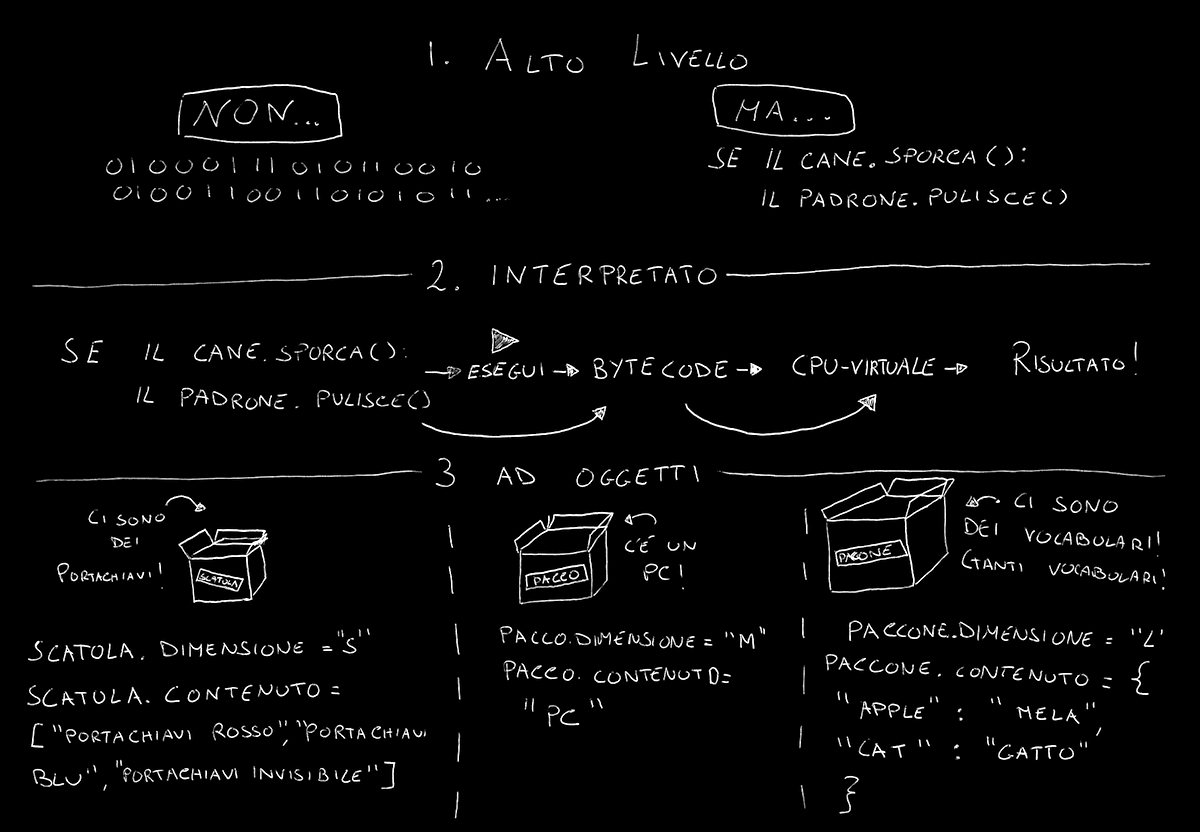 1. ALTO LIVELLO
NON...
01000111010110010
01001100110101011...
MA...
SE IL CANE.SPORCA():
IL PADRONE.PULISCE()
2. INTERPRETATO
SE IL CANE.SPORCA():
IL PADRONE.PULISCE()
ESEGUI
BYTECODE
CPU-VIRTUALE
RISULTATO!
3 AD OGGETTI
CI SONO
DEI
PORTACHIAVI!
SCATOLA
SCATOLA.DIMENSIONE = "S"
SCATOLA.CONTENUTO =
["PORTACHIAVI ROSSO","PORTACHIAVI
BLU","PORTACHIAVI INVISIBILE"]
C'È UN
PC!
PACCO
PACCO.DIMENSIONE = "M"
PACCO.CONTENUTO=
"PC"
CI SONO
DEI VOCABOLARI!
(TANTI VOCABOLARI!
PACCONE
PACCONE.DIMENSIONE = "L'
PACCONE.CONTENUTO = {
"APPLE" : "MELA",
"CAT" : "GATTO"
}